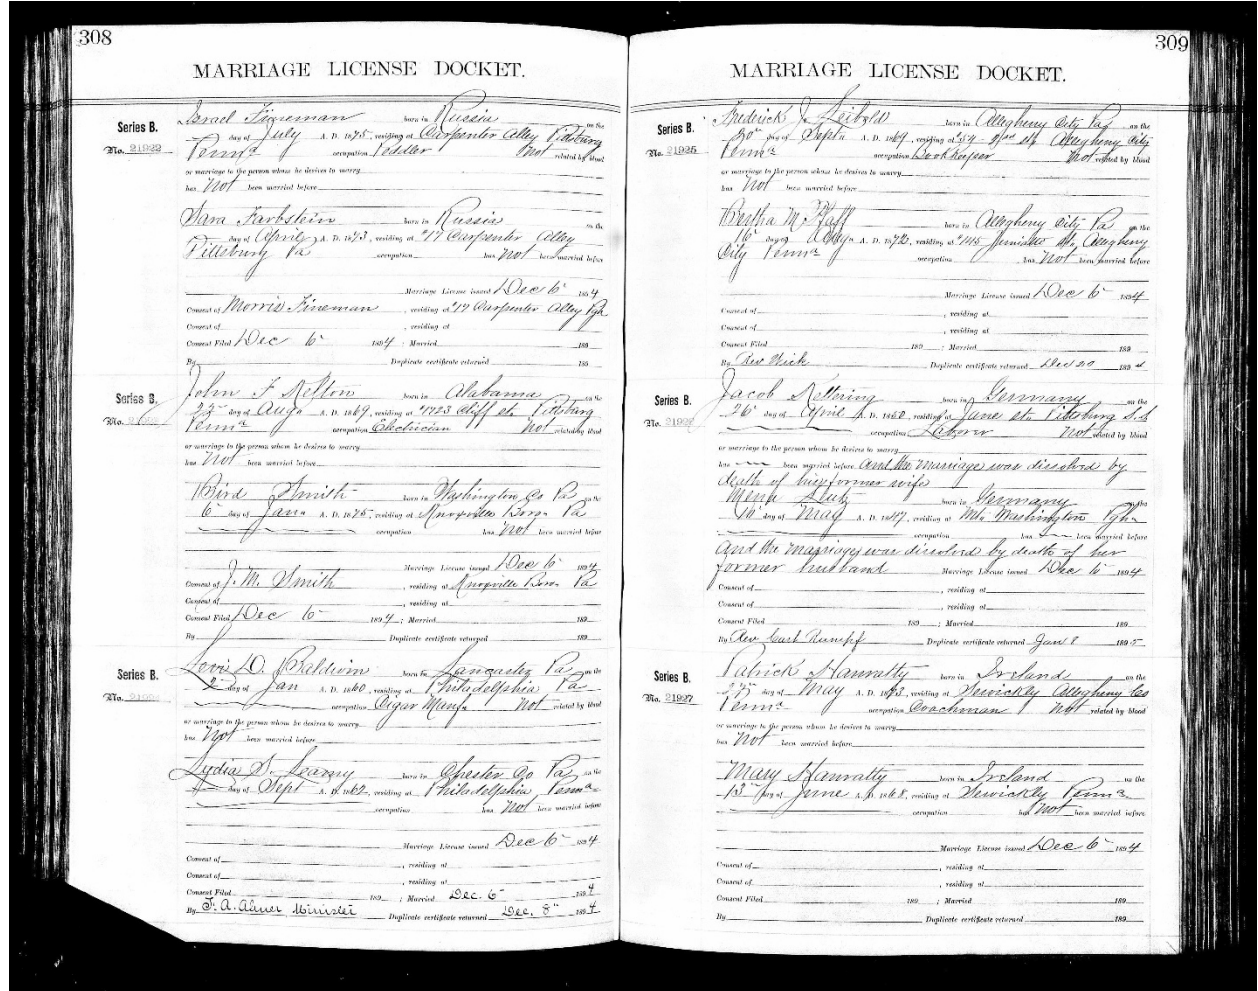 308
MARRIAGE LICENSE DOCKET.
Israel Fineman born in Russia on the
Series B.
day of July A. D. 1875, residing at Carpenter Alley Pittsburg
No. 21922
Penna occupation Peddler Not related by blood
or marriage to the person whom he desires to marry
has Not been married before
Sara Farbstein born in Russia on the
day of April A. D. 1873, residing at #17 Carpenter Alley
Pittsburg Pa occupation has Not been married before
Marriage License issued Dec 6 1894
Consent of Morris Fineman , residing at #17 Carpenter Alley Pgh
Consent of , residing at
Consent Filed Dec 6 1894 ; Married 189
By Duplicate certificate returned 189
John F Melton born in Alabama on the
Series B.
22 day of Aug A. D. 1869, residing at #1723 Cliff st Pittsburg
No.
Penna occupation Electrician Not related by blood
or marriage to the person whom he desires to marry
has Not been married before
Bird Smith born in Washington Co Pa on the
6 day of Jan A. D. 1875, residing at Knoxville Boro Pa
occupation has Not been married before
Marriage License issued Dec 6 1894
Consent of J. M. Smith , residing at Knoxville Boro Pa
Consent of , residing at
Consent Filed Dec 6 1894 ; Married 189
By Duplicate certificate returned 189
Levi D. Baldwin born in Lancaster Pa on the
Series B.
2 day of Jan A. D. 1860, residing at Philadelphia Pa
No.
occupation Cigar Manfr Not related by blood
or marriage to the person whom he desires to marry
has Not been married before
Lydia S. born in Chester Co Pa on the
day of Sept A. D. 1862, residing at Philadelphia Penna
occupation has Not been married before
Marriage License issued Dec 6 1894
Consent of , residing at
Consent of , residing at
Consent Filed 189 ; Married Dec. 6 1894
By F. A. Minister Duplicate certificate returned Dec. 8" 1894
309
MARRIAGE LICENSE DOCKET.
Frederick J. Leibold born in Allegheny City Pa on the
Series B.
30" day of Sept A. D. 1869, residing at #54 st Allegheny City
No. 21925
Penna occupation Bookkeeper Not related by blood
or marriage to the person whom he desires to marry
has Not been married before
Bertha M Pfaff born in Allegheny City Pa on the
16 day of A. D. 1872, residing at Juniata st. Allegheny
City Penna occupation has Not been married before
Marriage License issued Dec 6 1894
Consent of , residing at
Consent of , residing at
Consent Filed 189 ; Married 189
By Rev Duplicate certificate returned Dec 20 1894
Jacob born in Germany on the
Series B.
26 day of April A. D. residing at Jane st Pittsburg S.S.
No. 21926
occupation Laborer Not related by blood
or marriage to the person whom he desires to marry
has been married before And the marriage was dissolved by
death of his former wife
Mena born in Germany on the
16 day of May A. D. 1847, residing at Mt. Washington Pgh
occupation has been married before
And the marriage was dissolved by death of her
former husband Marriage License issued Dec 6 1894
Consent of , residing at
Consent of , residing at
Consent Filed 189 ; Married 189
By Rev Carl Rumpf Duplicate certificate returned Jan 8 1895
Patrick Hanratty born in Ireland on the
Series B.
day of May A. D. 1863, residing at Sewickly Allegheny Co
No. 21927
Penna occupation Coachman Not related by blood
or marriage to the person whom he desires to marry
has Not been married before
Mary Hanratty born in Ireland on the
13 day of June A. D. 1868, residing at Sewickly Penna
occupation has Not been married before
Marriage License issued Dec 6 1894
Consent of , residing at
Consent of , residing at
Consent Filed 189 ; Married 189
By Duplicate certificate returned 189